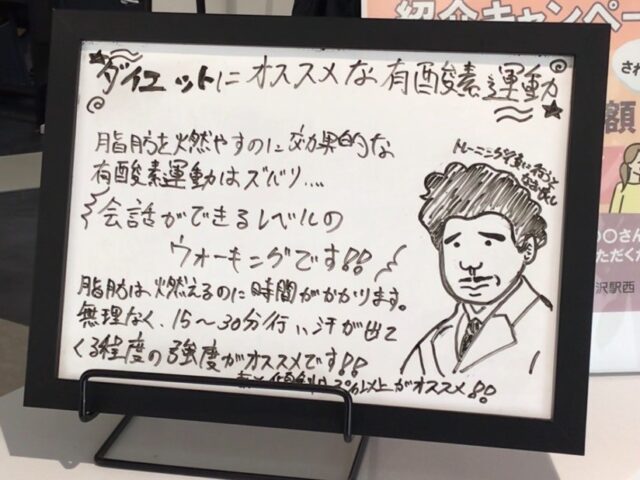 ダイエットにオススメな有酸素運動
脂肪を燃やすのに効果的な
有酸素運動はズバリ....
会話ができるレベルの
ウォーキングです!!
脂肪は燃えるのに時間がかかります。
無理なく、15～30分行い汗が出て
くる程度の強度がオススメです!!
以上がオススメ!!
トレーニング
紹介キャンペー
額
○さん
ただくた
沢駅西